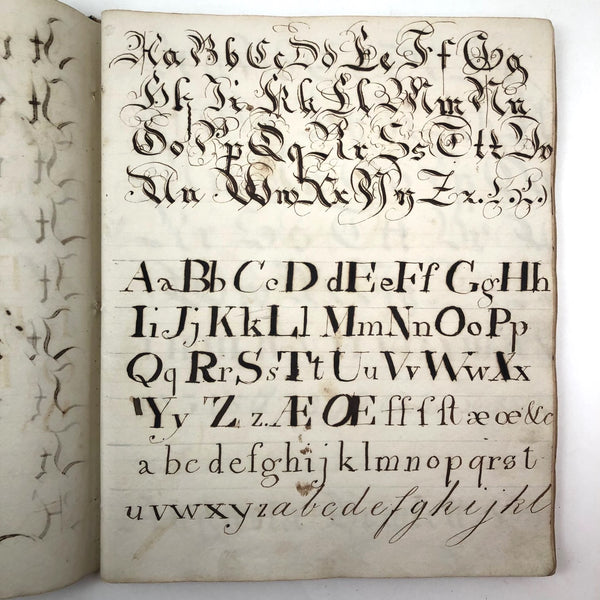 Aa Bb Cc Dd Ee Ff Gg
Hh Ii Kk Ll Mm Nn
Oo Pp Qq Rr Ss Ttt Vv
Uu Ww Xx Yy Zz.
Aa Bb Cc Dd Ee Ff Gg Hh
Ii Jj Kk Ll Mm Nn Oo Pp
Qq Rr Ss Tt Uu Vv Ww Xx
Yy Zz. Æ Œ ff ſ ſt æ œ &c
a b c d e f g h i j k l m n o p q r s t
u v w x y z a b c d e f g h i j k l